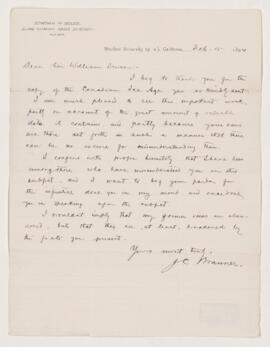 Stanford University P.O. California. Feb. 15 1894
Dear Sir William Dawson:
I beg to thank you for the
copy of the Canadian Ice Age you so kindly sent.
I am much pleased to see this important work,
partly on account of the great amount of valuable
data it contains and partly because your views
are there set forth in such a manner that there
can be no excuse for misunderstanding them.
I confess with proper humility that I have been
among those who have misunderstood you on this
subject, and I want to beg your pardon for
the injustice done you in my mind and
you in speaking upon the subject.
I wouldn't imply that my former views are
, but that they are, at least, broadened by
the facts you present.
Yours most truly,
J. C. Branner.